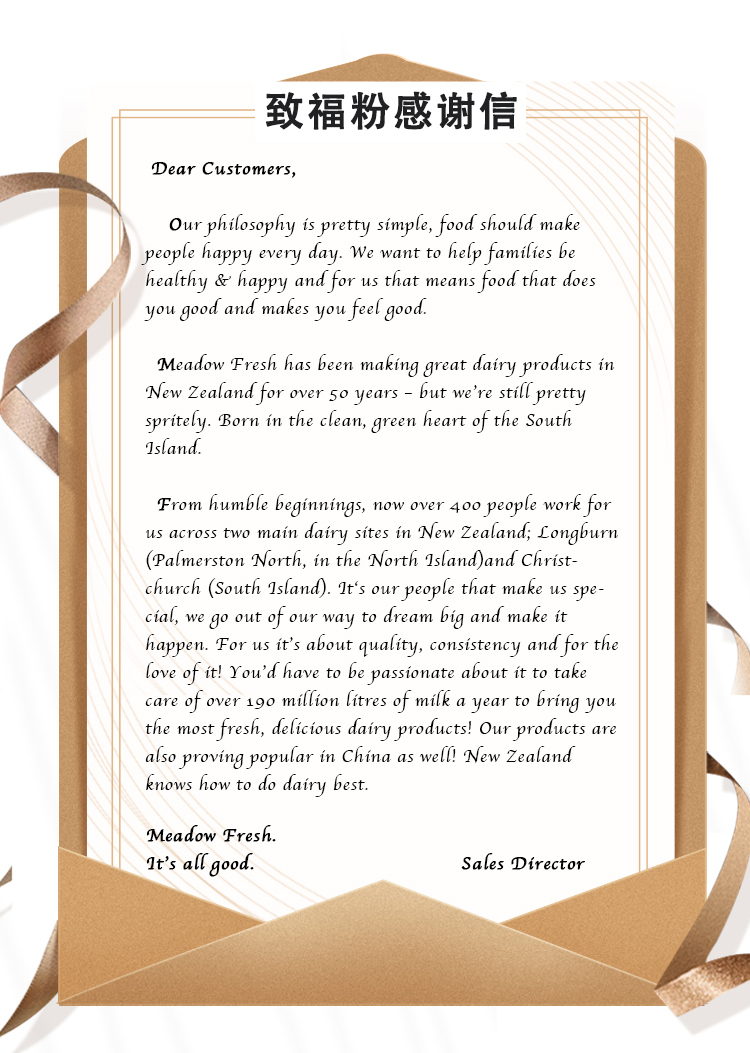 致福粉感谢信
Dear Customers,
Our philosophy is pretty simple, food should make
people happy every day. We want to help families be
healthy & happy and for us that means food that does
you good and makes you feel good.
Meadow Fresh has been making great dairy products in
New Zealand for over 50 years – but we're still pretty
spritely. Born in the clean, green heart of the South
Island.
From humble beginnings, now over 400 people work for
us across two main dairy sites in New Zealand; Longburn
(Palmerston North, in the North Island)and Christ-
church (South Island). It‘s our people that make us spe-
cial, we go out of our way to dream big and make it
happen. For us it's about quality, consistency and for the
love of it! You'd have to be passionate about it to take
care of over 190 million litres of milk a year to bring you
the most fresh, delicious dairy products! Our products are
also proving popular in China as well! New Zealand
knows how to do dairy best.
Meadow Fresh.
It's all good. Sales Director